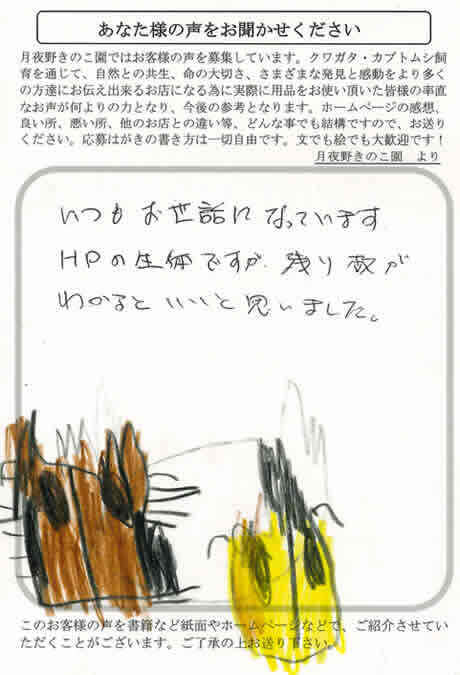 あなた様の声をお聞かせください
月夜野きのこ園ではお客様の声を募集しています。クワガタ・カブトムシ飼
育を通じて、自然との共生、命の大切さ、さまざまな発見と感動をより多く
の方達にお伝え出来るお店になる為に実際に用品をお使い頂いた皆様の率直
なお声が何よりの力となり、今後の参考となります。ホームページの感想、
良い所、悪い所、他のお店との違い等、どんな事でも結構ですので、お送り
ください。応募はがきの書き方は一切自由です。文でも絵でも大歓迎です！
月夜野きのこ園　より
いつもお世話になっています
HPの生体ですが、残り数が
わかるといいと思いました。
このお客様の声を書籍など紙面やホームページなどで、ご紹介させてい
ただくことがございます。ご了承の上お送り下さい。